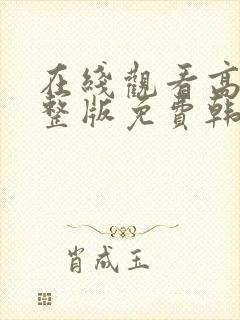 在綫觀看高
整版免費韩
肖成玉